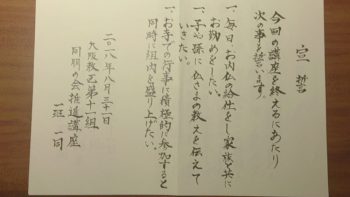 宣誓
今回の講座を終えるにあたり
次の事を誓います。
一、毎日お内仏の給仕をし家族と共に
お勤めをしたい。
一、子や孫に仏さまの教えを伝えて
いきたい。
一、お寺での行事に積極的に参加すると
同時に組内を盛り上げたい。
二〇一八年八月三十一日
大阪教区第十一組
同朋の会推進講座
一班一同